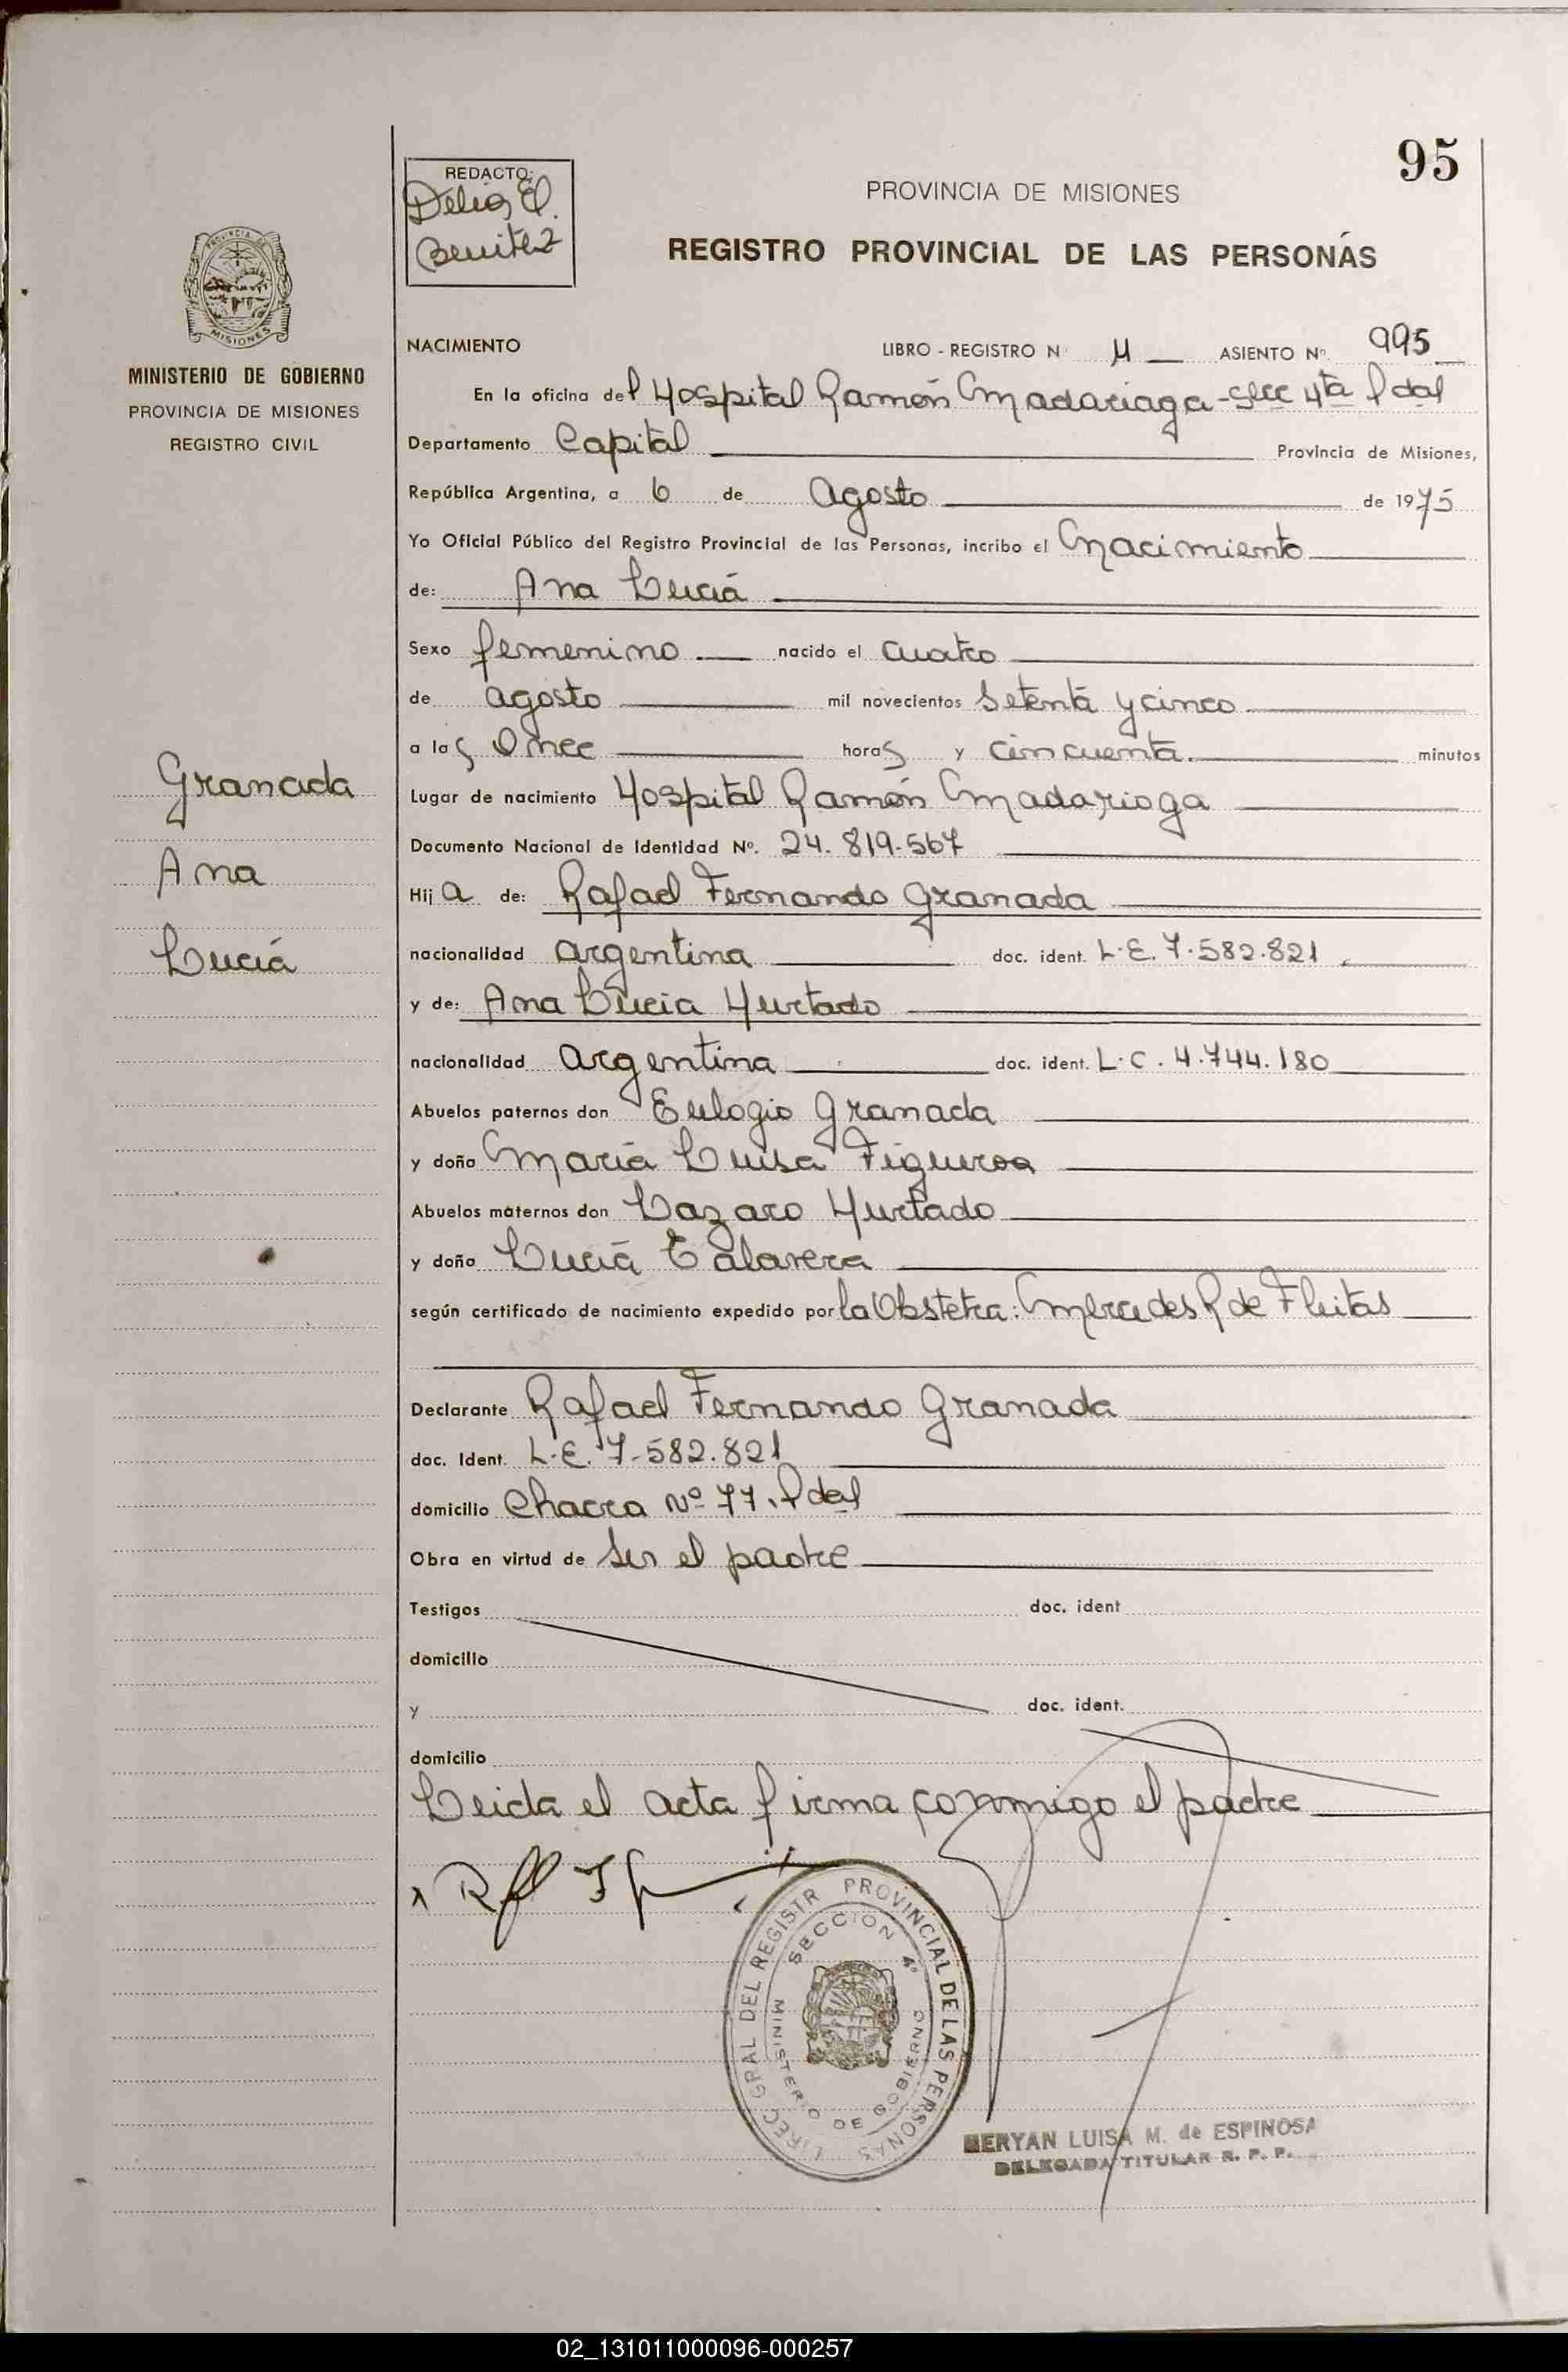 95
REDACTO:
Delia E.
Benitez
PROVINCIA DE MISIONES
REGISTRO PROVINCIAL DE LAS PERSONAS
MISIONES
MINISTERIO DE GOBIERNO
PROVINCIA DE MISIONES
REGISTRO CIVIL
NACIMIENTO LIBRO - REGISTRO N ASIENTO Nº. 995
En la oficina del Hospital Ramón Madariaga - Secc 4ta Pdas
Departamento Capital Provincia de Misiones,
República Argentina, a 6 de agosto de 1975
Yo Oficial Público del Registro Provincial de las Personas, incribo el Nacimiento
de: Ana Lucía
Sexo femenino nacido el cuatro
de agosto mil novecientos setenta y cinco
a las Once horas y cincuenta. minutos
Lugar de nacimiento Hospital Ramón Madariaga
Documento Nacional de Identidad Nº. 24.819.567
Hija de: Rafael Fernando Granada
nacionalidad argentina doc. ident. L.E. 7.582.821
y de: Ana Lucia Hurtado
nacionalidad argentina doc. ident. L.C. 4.744.180
Abuelos paternos don Eulogio Granada
y doña María Luisa Figueroa
Abuelos maternos don Lazaro Hurtado
y doña Lucía Talavera
según certificado de nacimiento expedido por la Obstetra: Mercedes R de Fleitas
Declarante Rafael Fernando Granada
doc. Ident. L.E. 7.582.821
domicilio Chacra Nº 77. Pdas
Obra en virtud de ser el padre
Testigos doc. ident
domicilio
y doc. ident.
domicilio
Leida el acta firma conmigo el padre
Granada
Ana
Lucía
DIREC GRAL DEL REGISTR PROVINCIAL DE LAS PERSONAS
SECCION 4ª
MINISTERIO DE GOBIERNO
MERYAN LUISA M. de ESPINOSA
DELEGADA TITULAR R. P. P.
02_131011000096-000257